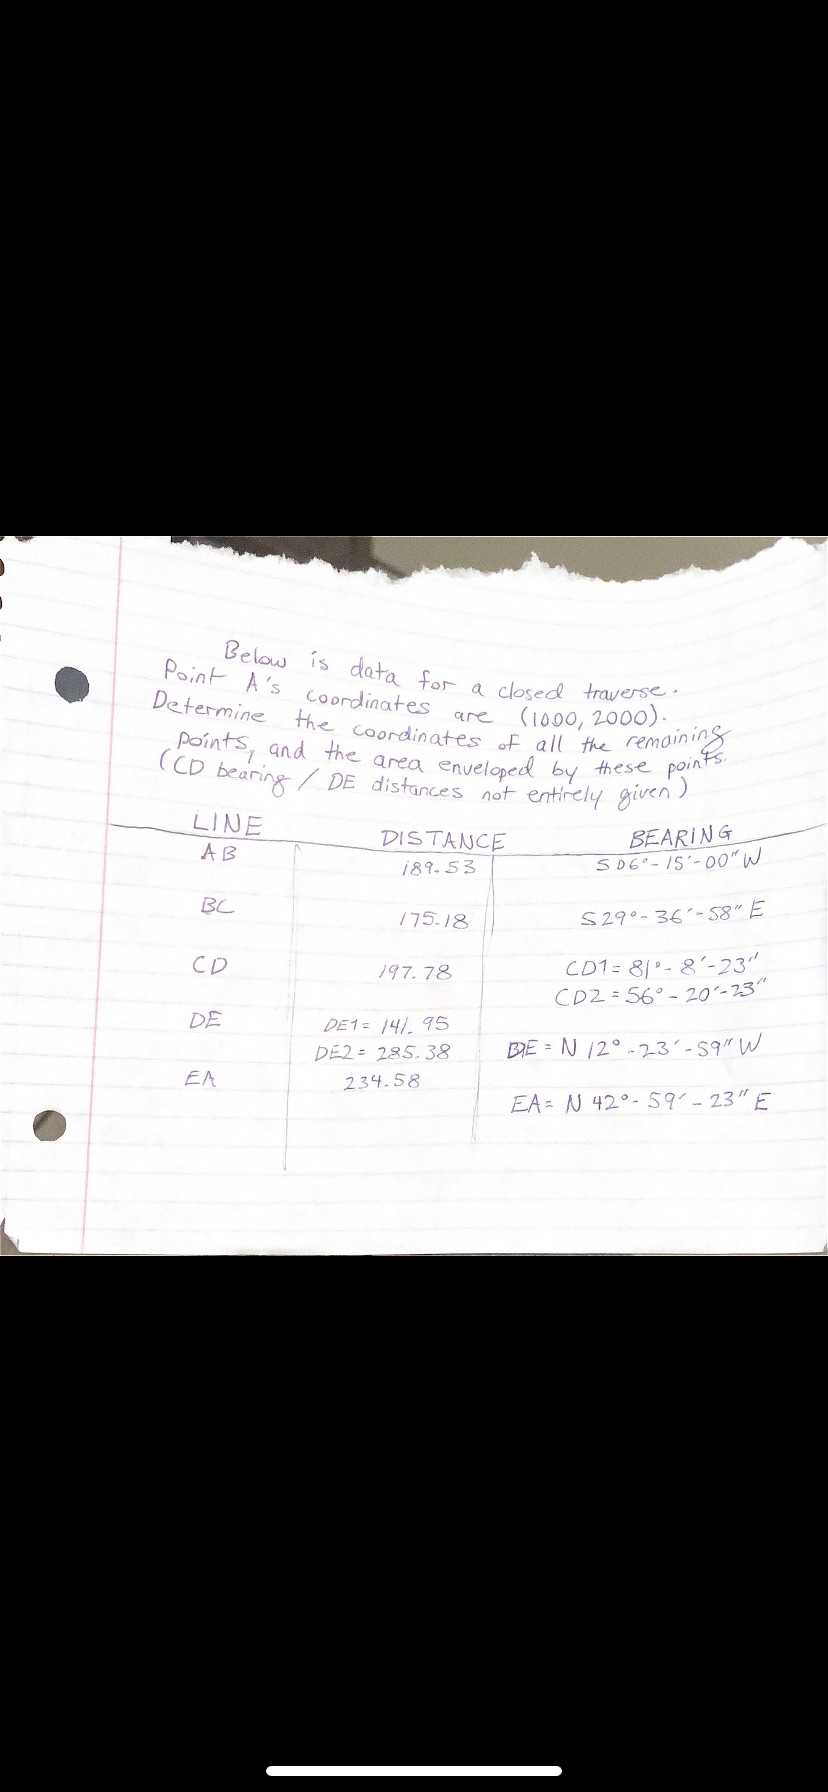 Below is data for a closed traverse.
Point A's coordinates are (1000, 2000).
Determine the coordinates of all the remaining
points, and the area enveloped by these points.
(CD bearing / DE distances not entirely given)
LINE DISTANCE BEARING
AB 189.53 S06°-15'-00" W
BC 175.18 S29°-36'-58" E
CD 197.78 CD1= 81°-8'-23"
CD2 = 56°-20'-23"
DE DE1= 141.95
DE2= 285.38 DE = N 12°-23'-59" W
EA 234.58
EA= N 42°-59'-23" E